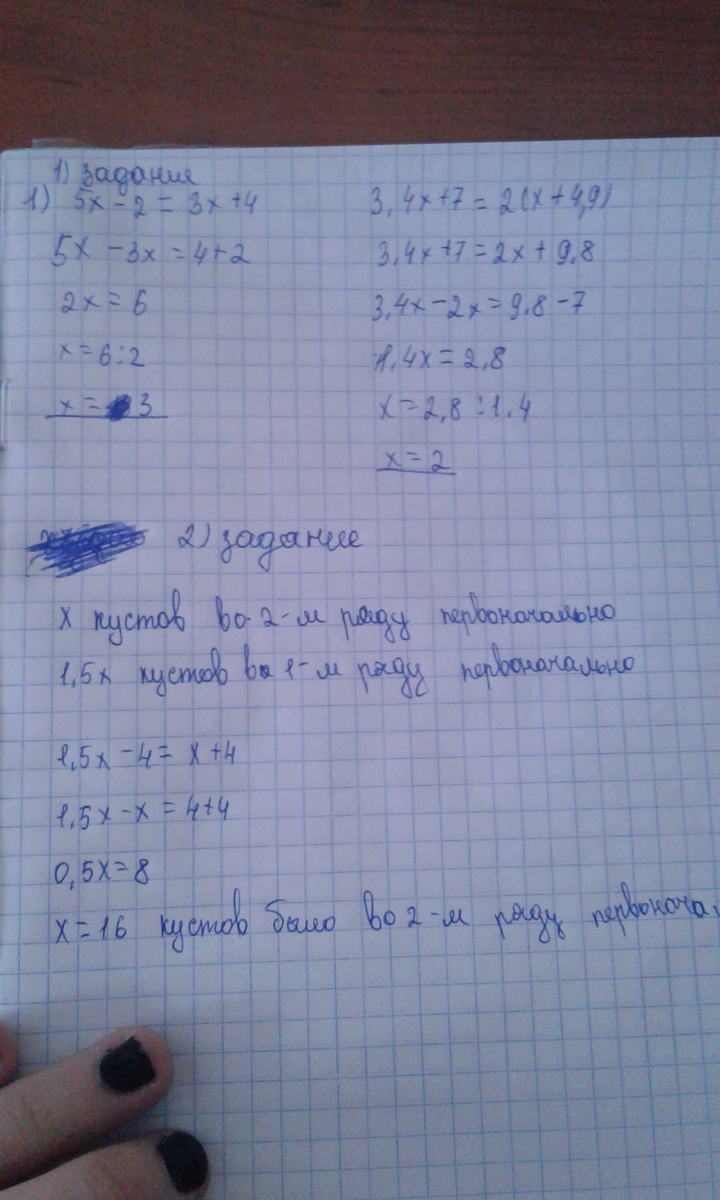 1) задание
1) 5x - 2 = 3x + 4
5x - 3x = 4 + 2
2x = 6
x = 6 : 2
x = 3
3,4x + 7 = 2(x + 4,9)
3,4x + 7 = 2x + 9,8
3,4x - 2x = 9,8 - 7
1,4x = 2,8
x = 2,8 : 1,4
x = 2
2) задание
x кустов во 2-м ряду первоначально
1,5x кустов во 1-м ряду первоначально
1,5x - 4 = x + 4
1,5x - x = 4 + 4
0,5x = 8
x = 16 кустов было во 2-м ряду первонача